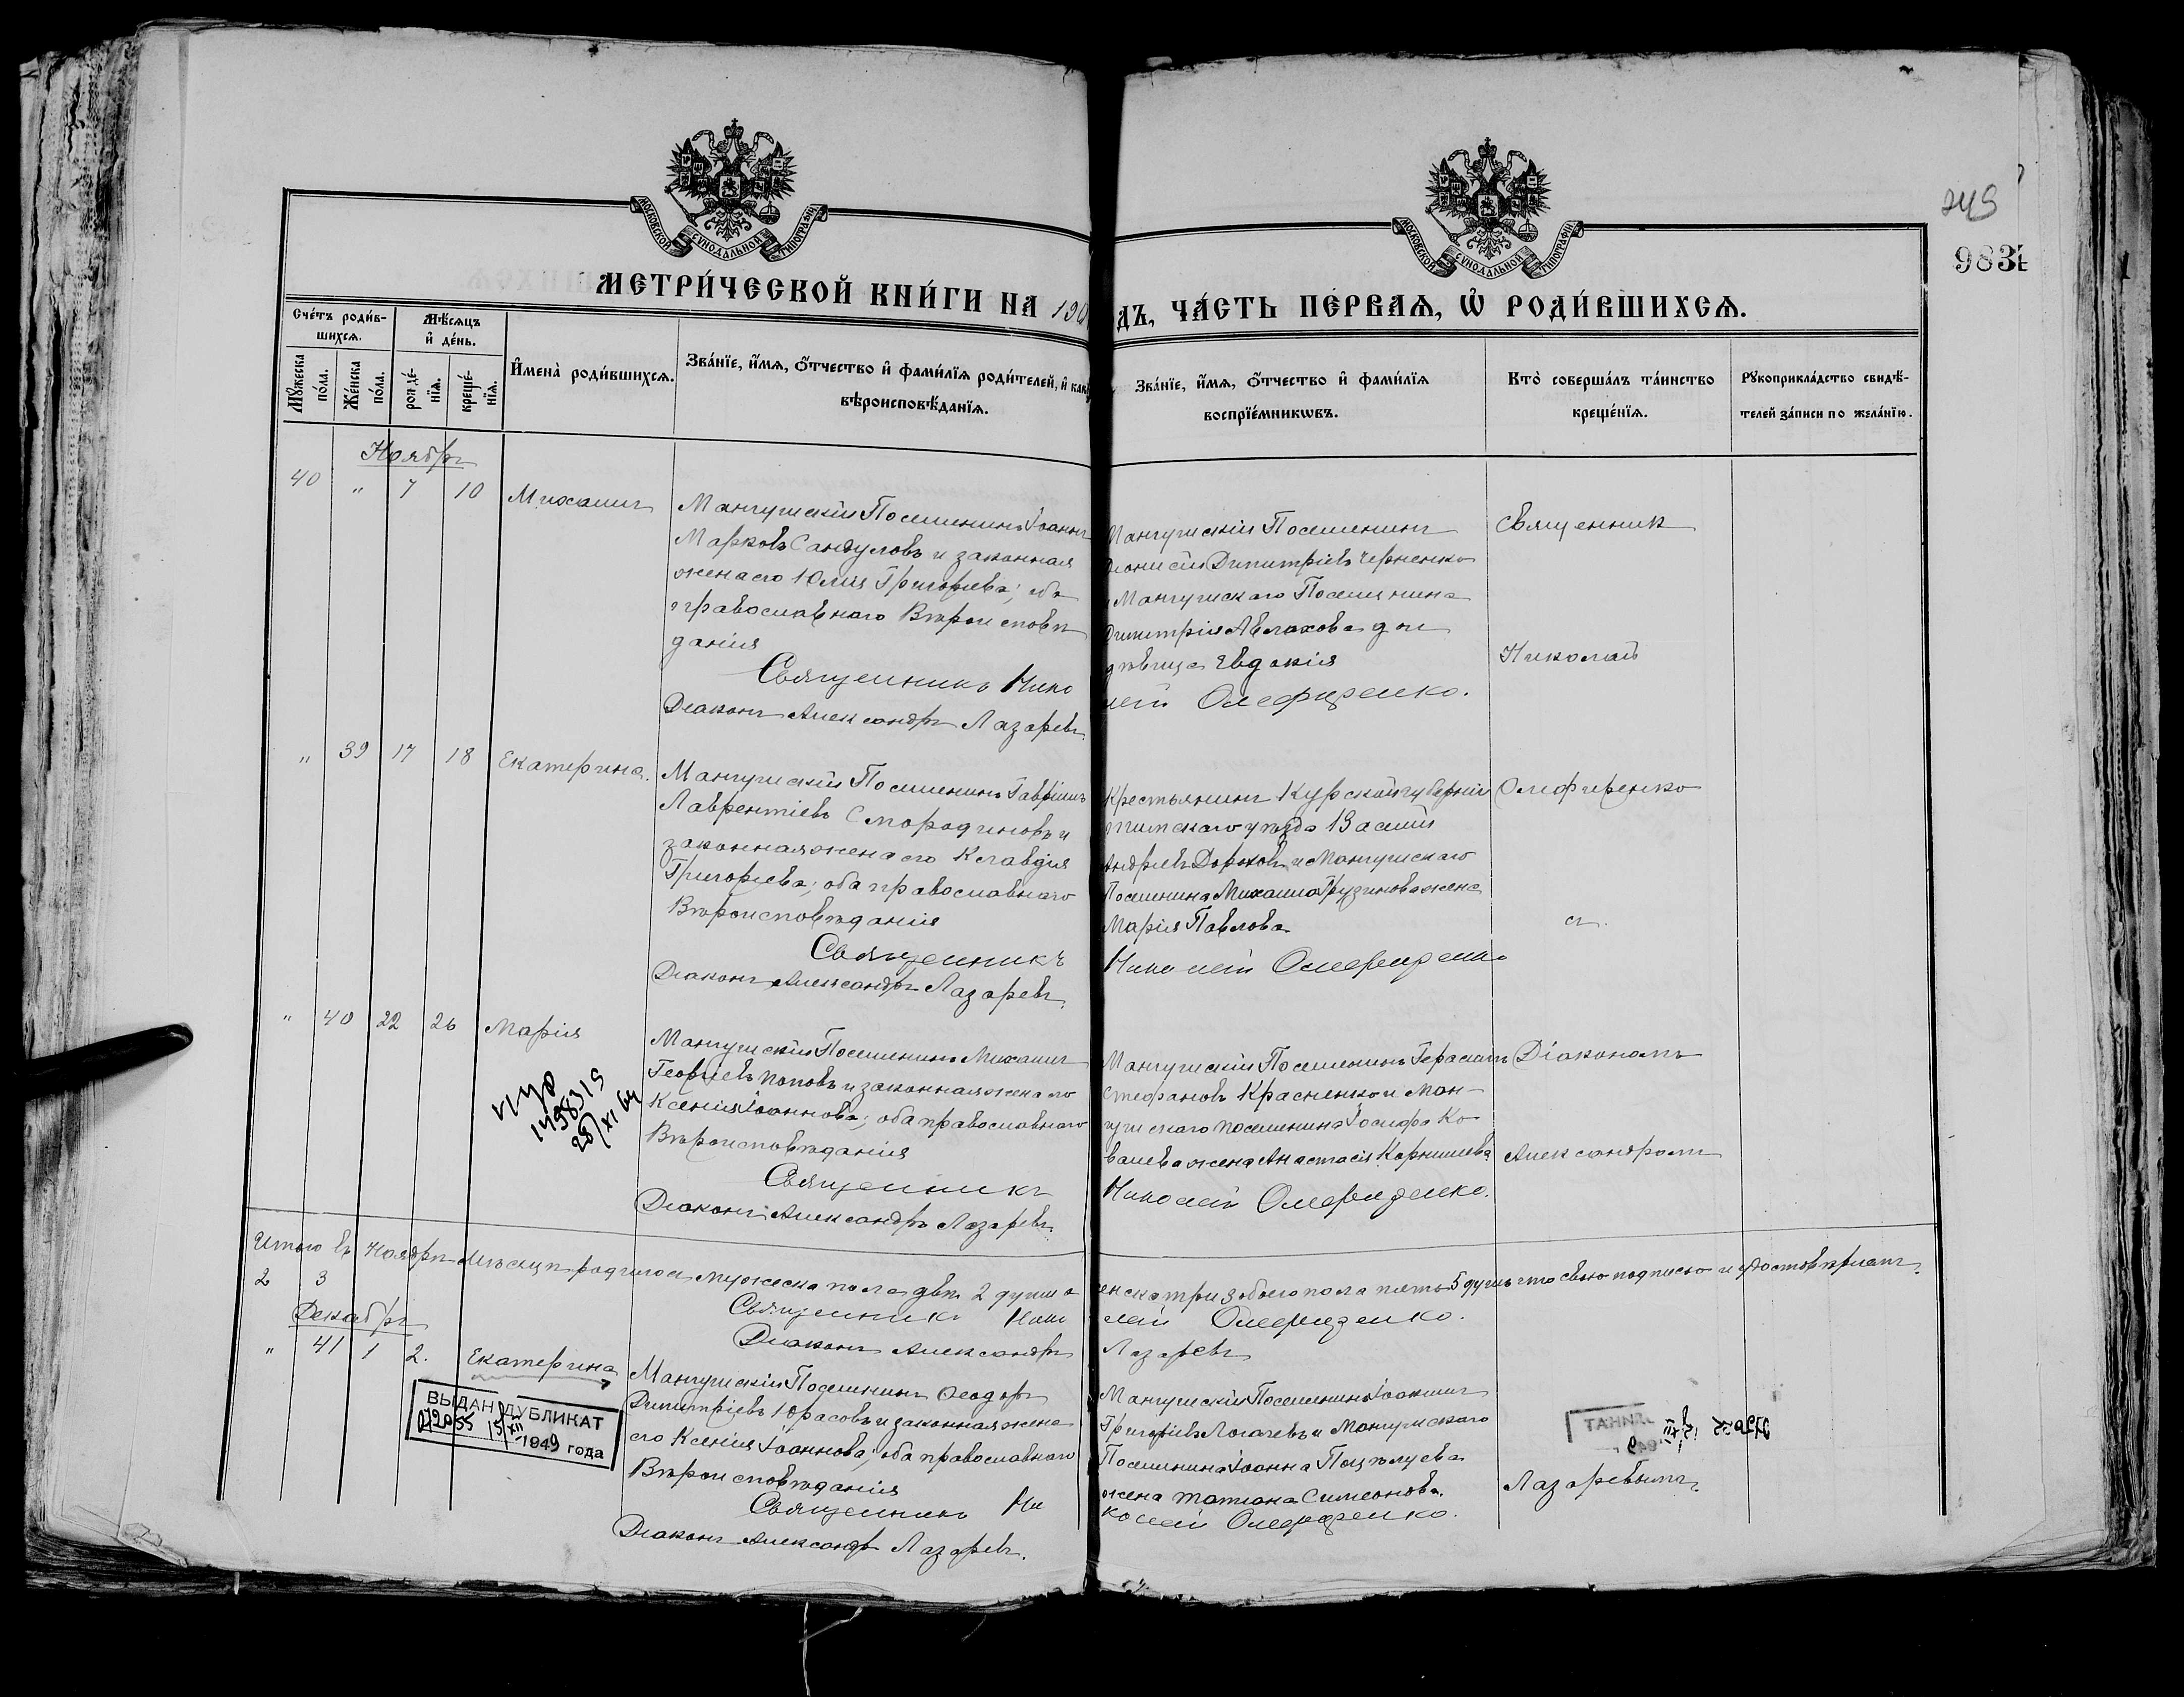 МОСКОВСКОЙ СѴНОДАЛЬНОЙ ТИПОГРАФІИ
МОСКОВСКОЙ СѴНОДАЛЬНОЙ ТИПОГРАФІИ
245
983
МЕТРИ́ЧЕСКОЙ КНИ́ГИ НА 190
ДЪ, ЧА́СТЬ ПЕ́РВАѦ, Ѡ҆ РОДИ́ВШИХСѦ.
Сче́тъ роди́в-
шихсѧ.
Мѣ́сѧцъ
и҆ де́нь.
Мꙋ́жеска по́ла.
Же́нска по́ла.
рожде́-
нїѧ.
креще́-
нїѧ.
И҆мена̀ роди́вшихсѧ.
Зва́нїе, и҆́мѧ, ѻ҆́тчество и҆ фами́лїѧ роди́телей, и҆ како
вѣроисповѣ́данїѧ.
Зва́нїе, и҆́мѧ, ѻ҆́тчество и҆ фами́лїѧ
воспрїе́мникѡвъ.
Кто̀ соверша́лъ та́инство
креще́нїѧ.
Рꙋкоприкла́дство свидѣ́-
телей за́писи по жела́нїю.
Ноябрь
40 " 7 10 Михаилъ
Мангушскій Поселянинъ Іоаннъ
Марковъ Сандуловъ и законная
жена его Юлія Григорьева; оба
православнаго Вѣроисповѣ
данія
Священникъ Нико
Діаконъ Александръ Лазаревъ.
Мангушскій Поселянинъ
Діонисій Димитріевъ Черненко
и Мангушскаго Поселянина
Димитрія Авлахова дочь
дѣвица Евдокія
лай Олефиренко.
Священник
Николай
" 39 17 18 Екатерина.
Мангушскій Поселянинъ Гавріилъ
Лаврентіевъ Смородиновъ и
законная жена его Клавдія
Григорьева; оба православнаго
Вѣроисповѣданія
Священникъ
Діаконъ Александръ Лазаревъ.
Крестьянинъ Курской губерніи
уѣзда Василій
Андреевъ Дороховъ и Мангушскаго
Поселянина Михаила Грузинова жена
Марія Павлова
Николай Олефиренко
Олефиренко
съ
" 40 22 26 Марія
1498315
28/XI 64
Мангушскій Поселянинъ Михаилъ
Георгіевъ Поповъ и законная жена его
Ксенія Іоаннова; оба православнаго
Вѣроисповѣданія
Священникъ
Діаконъ Александръ Лазаревъ.
Мангушскій Поселянинъ Герасимъ
Стефановъ Красненко и Ман-
гушскаго поселянина Іосифа Ко
валева жена Анастасія Корнилиева
Николай Олефиренко.
Діакономъ
Александромъ
Итого въ Ноябрѣ мѣсяцѣ родилося мужеска пола двѣ 2 души
женска три 3 обоего пола пять 5 душъ что свою подписью и удостовѣряемъ.
2 3
Священникъ Нико
лай Олефиренко.
Діаконъ Александръ
Лазаревъ
Декабрь
" 41 1 2. Екатерина
ВЫДАН ДУБЛИКАТ
072055 15/XII 1949 года
Мангушскій Поселянинъ Ѳеодоръ
Димитріевъ Юрасовъ и законная жена
его Ксенія Іоаннова; оба православнаго
Вѣроисповѣданія
Священникъ Ни
Діаконъ Александръ Лазаревъ.
Мангушскій Поселянинъ Іоакимъ
Григоріевъ Логачевъ и Мангушскаго
Поселянина Іоанна Поцѣлуева
жена Татіана Симеонова.
колай Олефиренко.
Лазаревымъ.